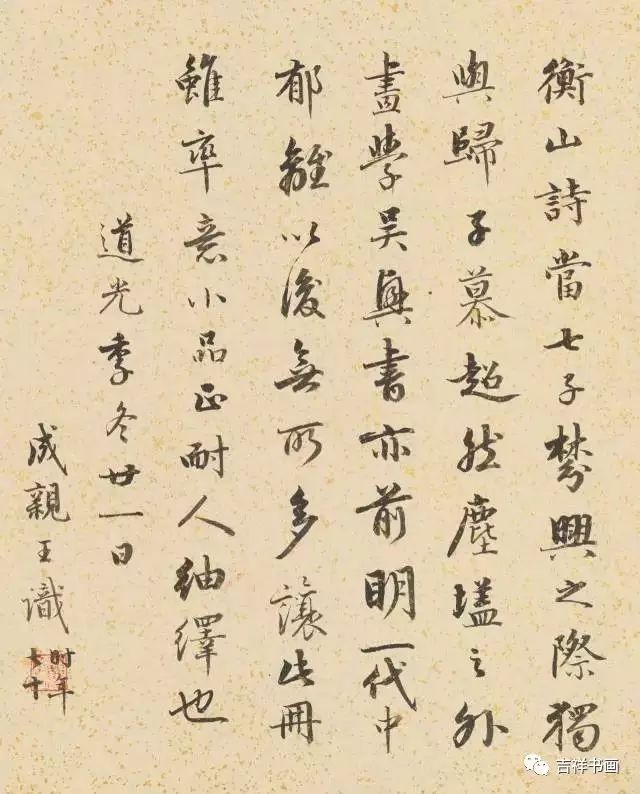 衡山詩當七子棼興之際獨
與歸子慕超然塵壒之外
畫學吳興書亦前明一代中
郁離以後無所多讓此冊
雖率意小品正耐人紬繹也
道光季冬廿一日
成親王識
时年
七十
吉祥书画